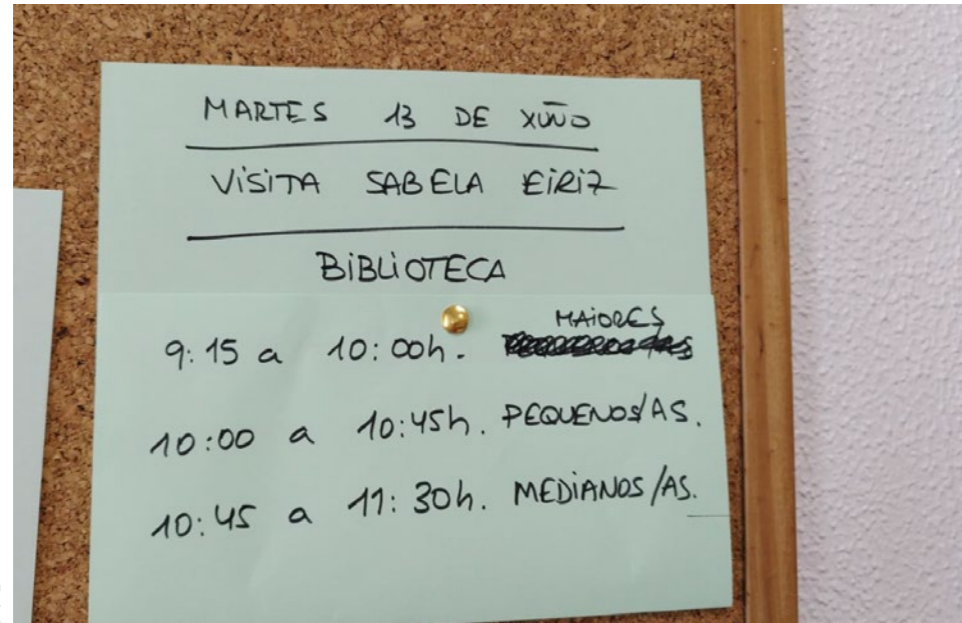 MARTES 13 DE XUÑO
VISITA SABELA EIRIZ
BIBLIOTECA
MAIORES
9:15 a 10:00h.
10:00 a 10:45h. PEQUENOS/AS.
10:45 a 11:30h. MEDIANOS/AS.